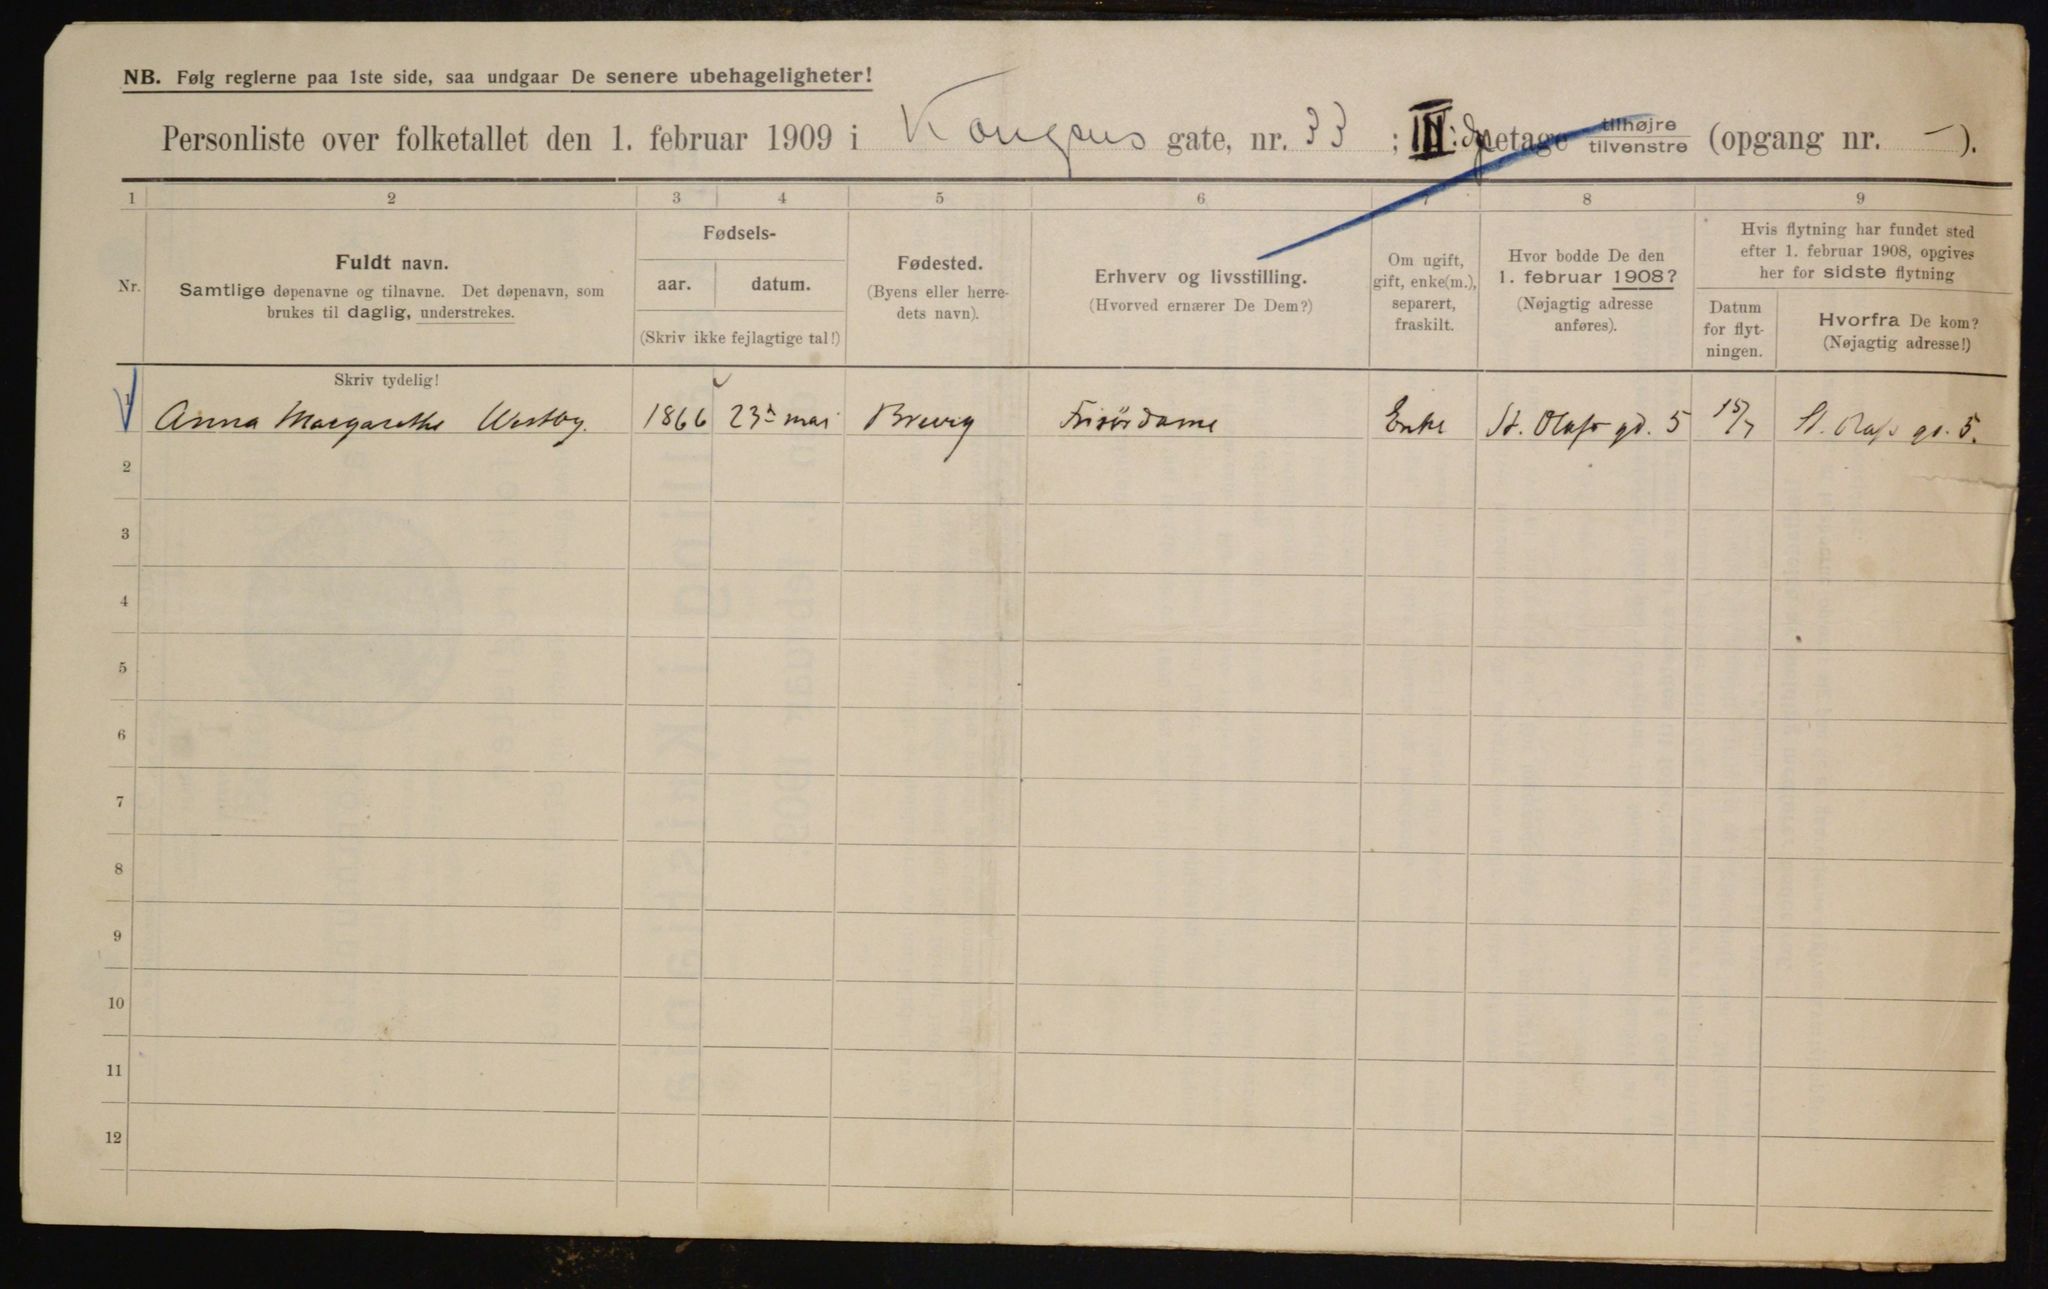 NB. Følg reglerne paa 1ste side, saa undgaar De senere ubehageligheter!
Personliste over folketallet den 1. februar 1909 i Kongens gate, nr. 33 ; III etage tilhøjre tilvenstre (opgang nr. — ).
1 2 3 4 5 6 7 8 9
Nr.
Fuldt navn.
Samtlige døpenavne og tilnavne. Det døpenavn, som
brukes til daglig, understrekes.
Skriv tydelig!
Fødsels-
aar. datum.
(Skriv ikke fejlagtige tal!)
Fødested.
(Byens eller herre-
dets navn).
Erhverv og livsstilling.
(Hvorved ernærer De Dem?)
Om ugift,
gift, enke(m.),
separert,
fraskilt.
Hvor bodde De den
1. februar 1908?
(Nøjagtig adresse
anføres).
Hvis flytning har fundet sted
efter 1. februar 1908, opgives
her for sidste flytning
Datum
for flyt-
ningen.
Hvorfra De kom?
(Nøjagtig adresse!)
1 Anna Margarethe Westby. 1866 23 mai Brevig Frisördame Enke St. Olafs gd. 5 15/7 St. Olafs gd. 5.
2
3
4
5
6
7
8
9
10
11
12